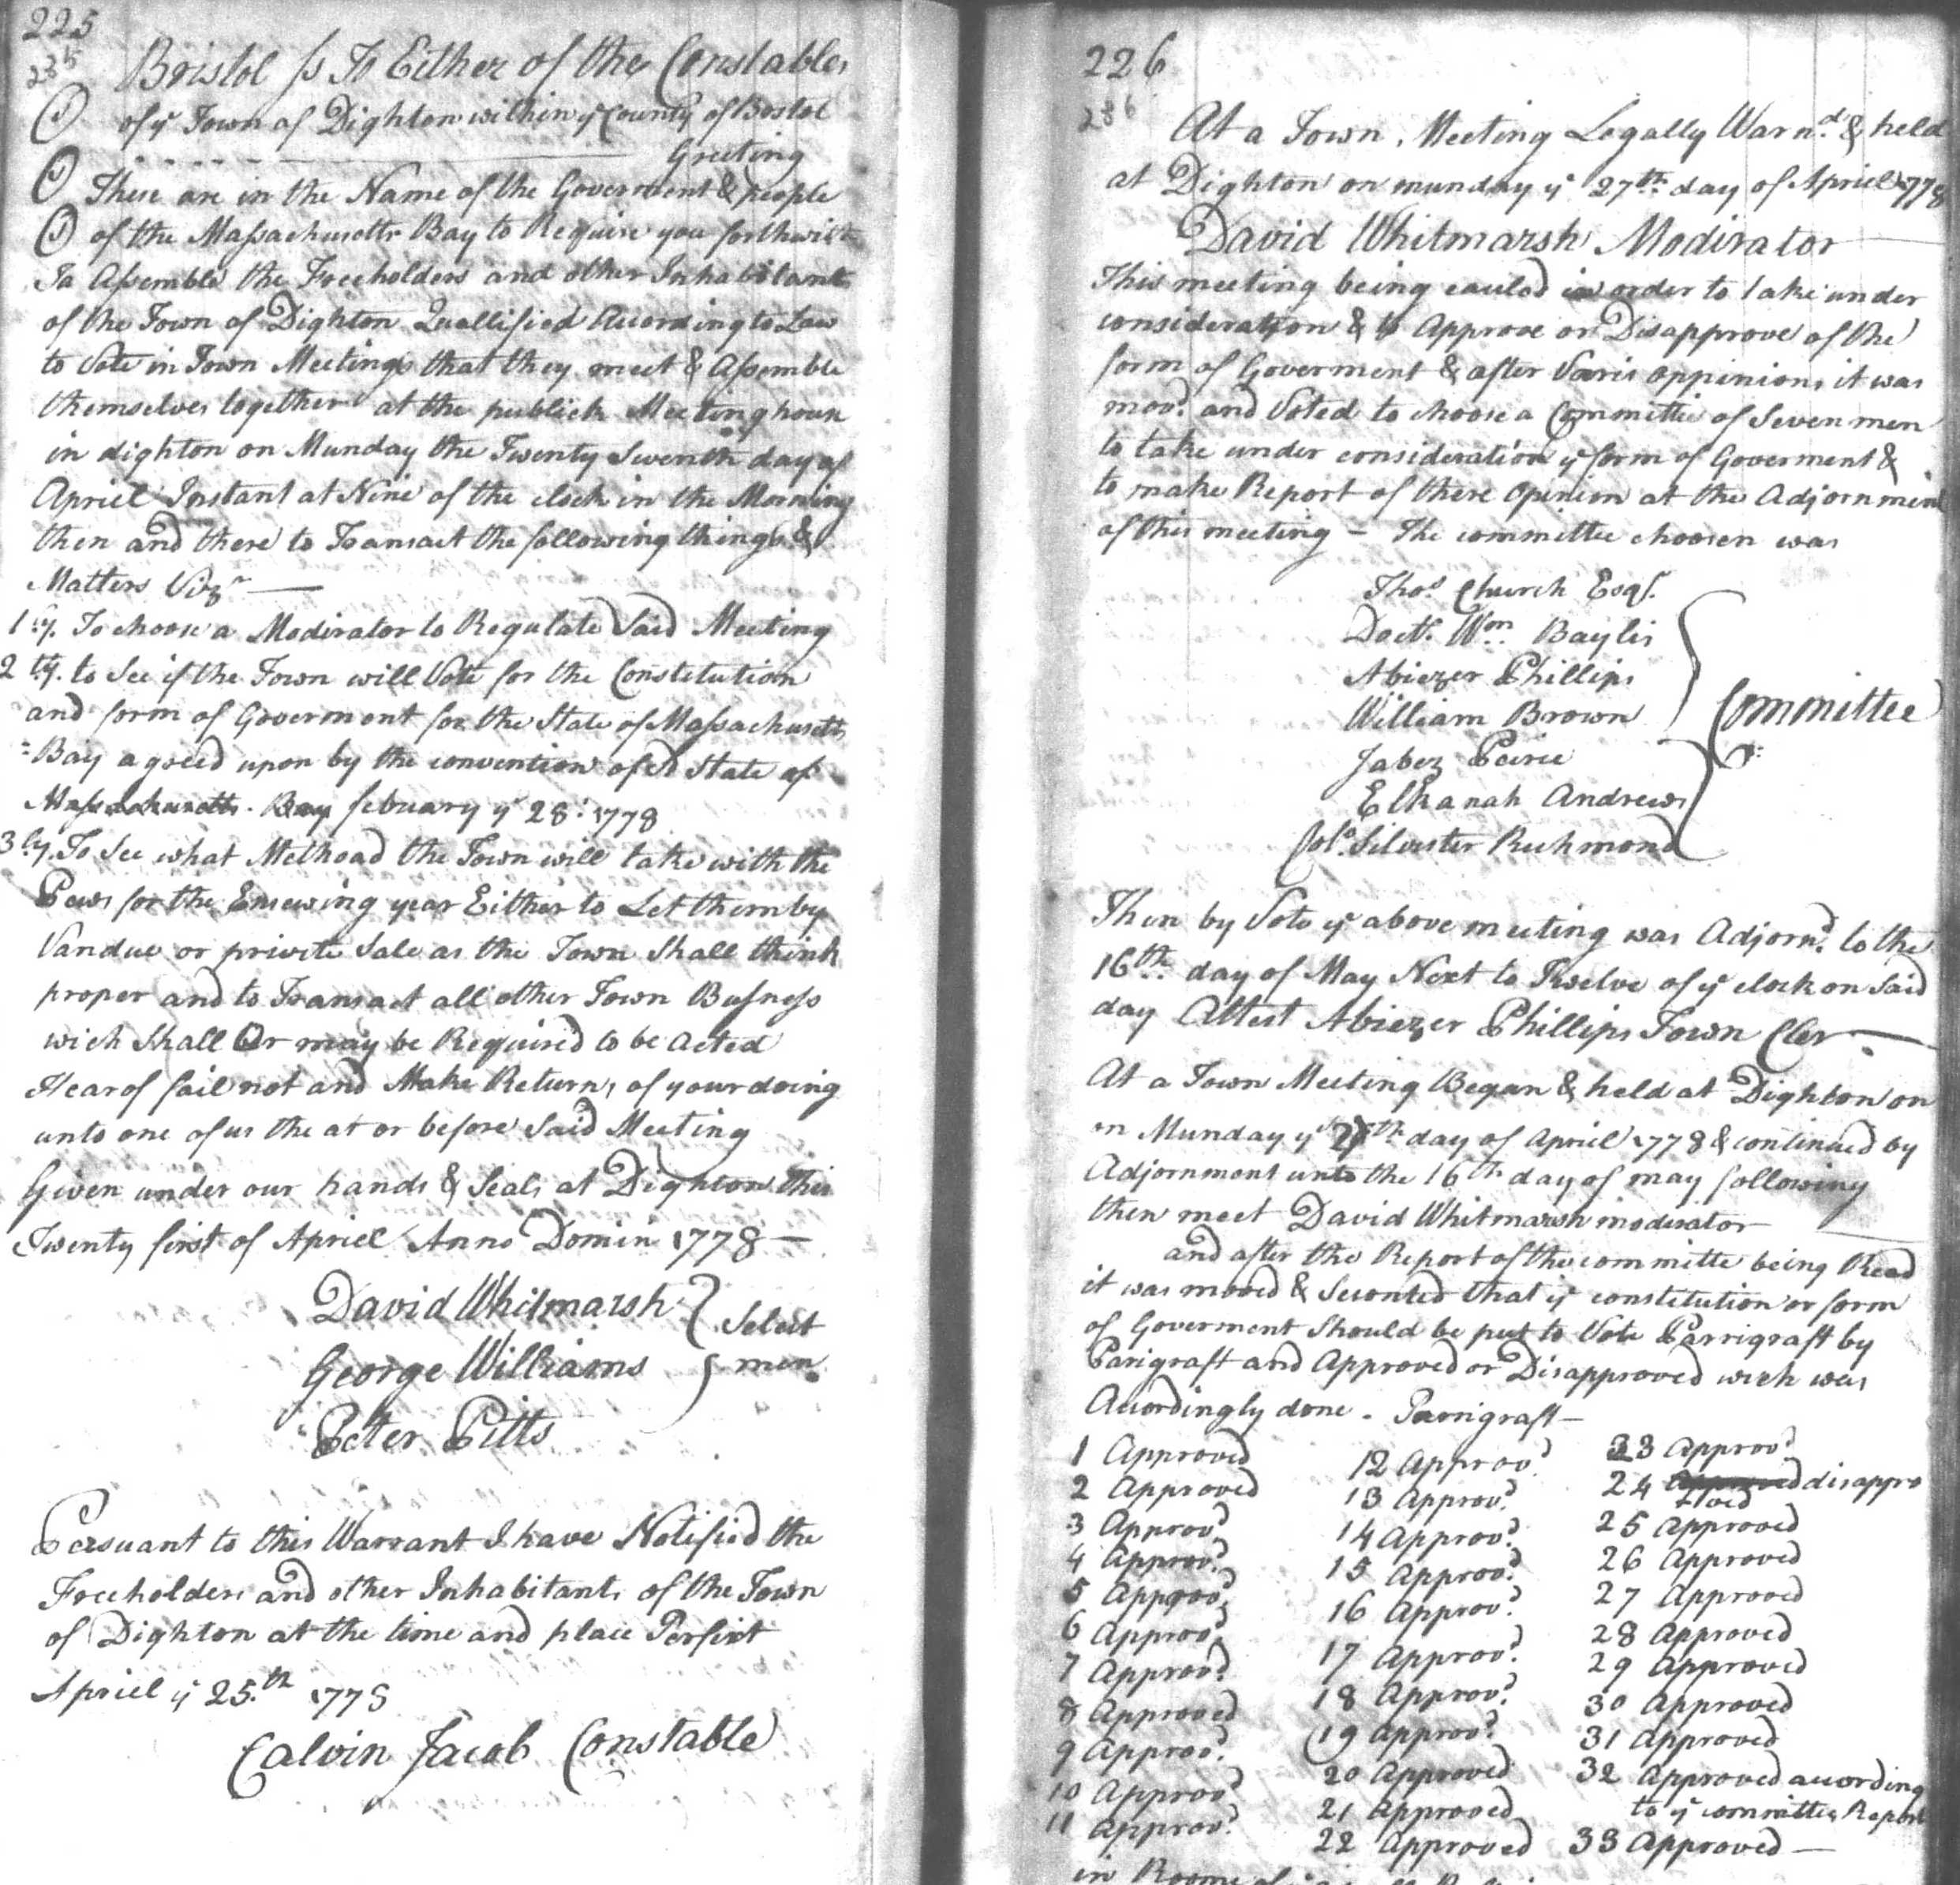 225
235
Bristol ss To Either of the Constables
of yͤ Town of Dighton within yͤ County of Bostol
Greeting
These are in the Name of the Goverment & people
of the Massachusetts Bay to Require you forthwith
To Assemble the Freeholders and other Inhabitants
of the Town of Dighton Quallified According to Law
to Vote in Town Meetings that they meet & Assemble
themselves together at the publick Meeting house
in dighton on Munday the Twenty Seventh day of
Apriel Instant at Nine of the clock in the Morning
then and there to Transact the following things &
Matters Viz
1ly. To choose a Moderator to Regulate Said Meeting
2ly. to See if the Town will Vote for the Constetution
and form of Goverment for the State of Massachusetts
=Bay agreed upon by the convention of sd State of
Massachusetts Bay febuary yͤ 28: 1778
3ly. To See what Methoad the Town will take with the
Pews for the Ensewing year Either to Let them by
Vandue or private Sale as the Town Shall think
proper and to Transact all other Town Busness
wich Shall Or may be Required to be acted
Hearof fail not and Make Return, of your doing
unto one of us the at or before Said Meeting
Given under our hands & Seals at Dighton this
Twenty first of Apriel Anno Domin 1778 —
David Whitmarsh
George Williams
Peter Pitts
Select
men
Persuant to this Warrant I have Notified the
Freeholders and other Inhabitants of the Town
of Dighton at the time and place Perfixt
Apriel yͤ 25.th 1778
Calvin Jacob Constable
226
236
At a Town Meeting Legally Warn.d & held
at Dighton on munday yͤ 27th day of Apriel 1778
David Whitmarsh Modirator
This meeting being cauled in order to take under
consideration & to Approve or Disapprove of the
form of Goverment & after Varis oppinions it was
movd. and Voted to choose a Committie of Seven men
to take under consideration yͤ form of Goverment &
to make Report of there opinion at the Adjornment
of this meeting — The committee choosen was
Thos Church Esqr.
Doctr. Wm. Baylis
Abiezer Phillips
William Brown
Jabez Peirce
Elkanah Andrews
Colo. Silvester Richmond
Committee
Then by Vote yͤ above meeting was Adjornd. to the
16th day of May Next to Twelve of yͤ clock on Said
day Attest Abiezer Phillips Town Cler
At a Town Meeting Began & held at Dighton on
on Munday yͤ 27th day of April 1778 & continued by
Adjornment unto the 16th day of may following
then meet David Whitmarsh moderator
and after the Report of the committe being Read
it was moved & Seconted that yͤ constetution or form
of Goverment Should be put to Vote Parrigraft by
Parigraft and Approved or Disapproved wich was
Accordingly done. Parrigraft —
1 Approved
2 Approved
3 Approvd.
4 Approvd.
5 Approvd.
6 Approvd.
7 Approvd.
8 Approved
9 Approvd.
10 Approvd.
11 Approvd.
12 Approvd.
13 Approvd.
14 Approvd.
15 Approvd.
16 Approvd.
17 Approvd.
18 Approvd.
19 Approvd.
20 Approved
21 Approved
22 Approved
23 Approvd.
24 Approved disappro
ved
25 Approved
26 Approved
27 Approved
28 Approved
29 Approved
30 Approved
31 Approved
32 Approved according
to yͤ committes Report
33 Approved —